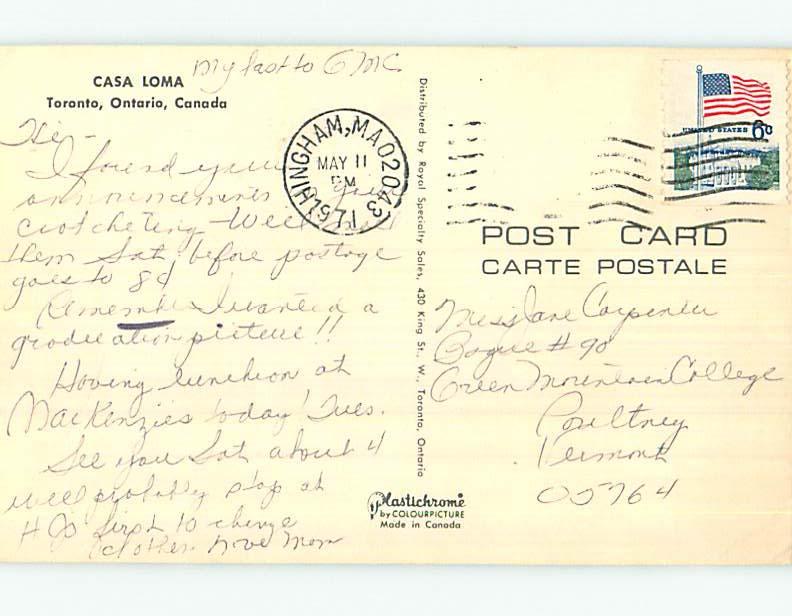 My last to GMC
CASA LOMA
Toronto, Ontario, Canada
Hi -
I found your
announcements
crotcheting - We'll
them Sat. before postage
goes to 8¢
Remember I wanted a
graduation picture!!
Having luncheon at
MacKenzies today! Tues.
See you Sat about 4
will probably stop at
H Js first to change
clothes. Love Mom
Distributed by Royal Specialty Sales, 430 King St., W., Toronto, Ontario
Plastichrome
by COLOURPICTURE
Made in Canada
HINGHAM, MA 02043
MAY 11
PM
1971
UNITED STATES 6¢
POST CARD
CARTE POSTALE
Miss Jane Carpenter
Bogue #90
Green Mountain College
Poultney
Vermont
05764